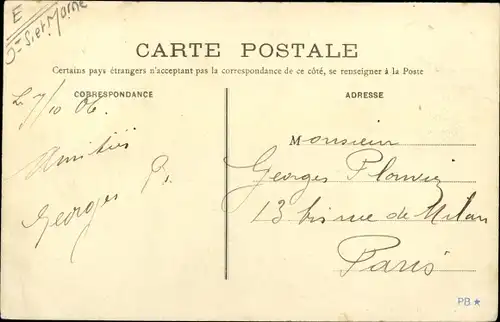 E
Sne et Marne
CARTE POSTALE
Certains pays étrangers n'acceptant pas la correspondance de ce côté, se renseigner à la Poste
CORRESPONDANCE
Le 7/10 06.
Amitiés
Georges P.
ADRESSE
Monsieur
Georges
13 bis rue de Milan
Paris
PB★